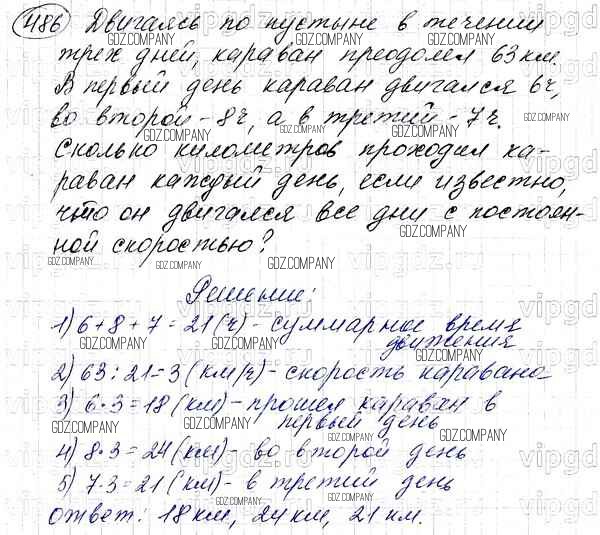 486 Двигаясь по пустыне в течении
трех дней, караван преодолел 63 км.
В первый день караван двигался 6ч,
во второй - 8ч, а в третий - 7ч.
Сколько километров проходил ка-
раван каждый день, если известно,
что он двигался все дни с постоян-
ной скоростью?
Решение:
1) 6 + 8 + 7 = 21 (ч) - суммарное время
движения
2) 63 : 21 = 3 (км/ч) - скорость каравана
3) 6 · 3 = 18 (км) - прошел караван в
первый день
4) 8 · 3 = 24 (км) - во второй день
5) 7 · 3 = 21 (км) - в третий день
ответ: 18 км, 24 км, 21 км.